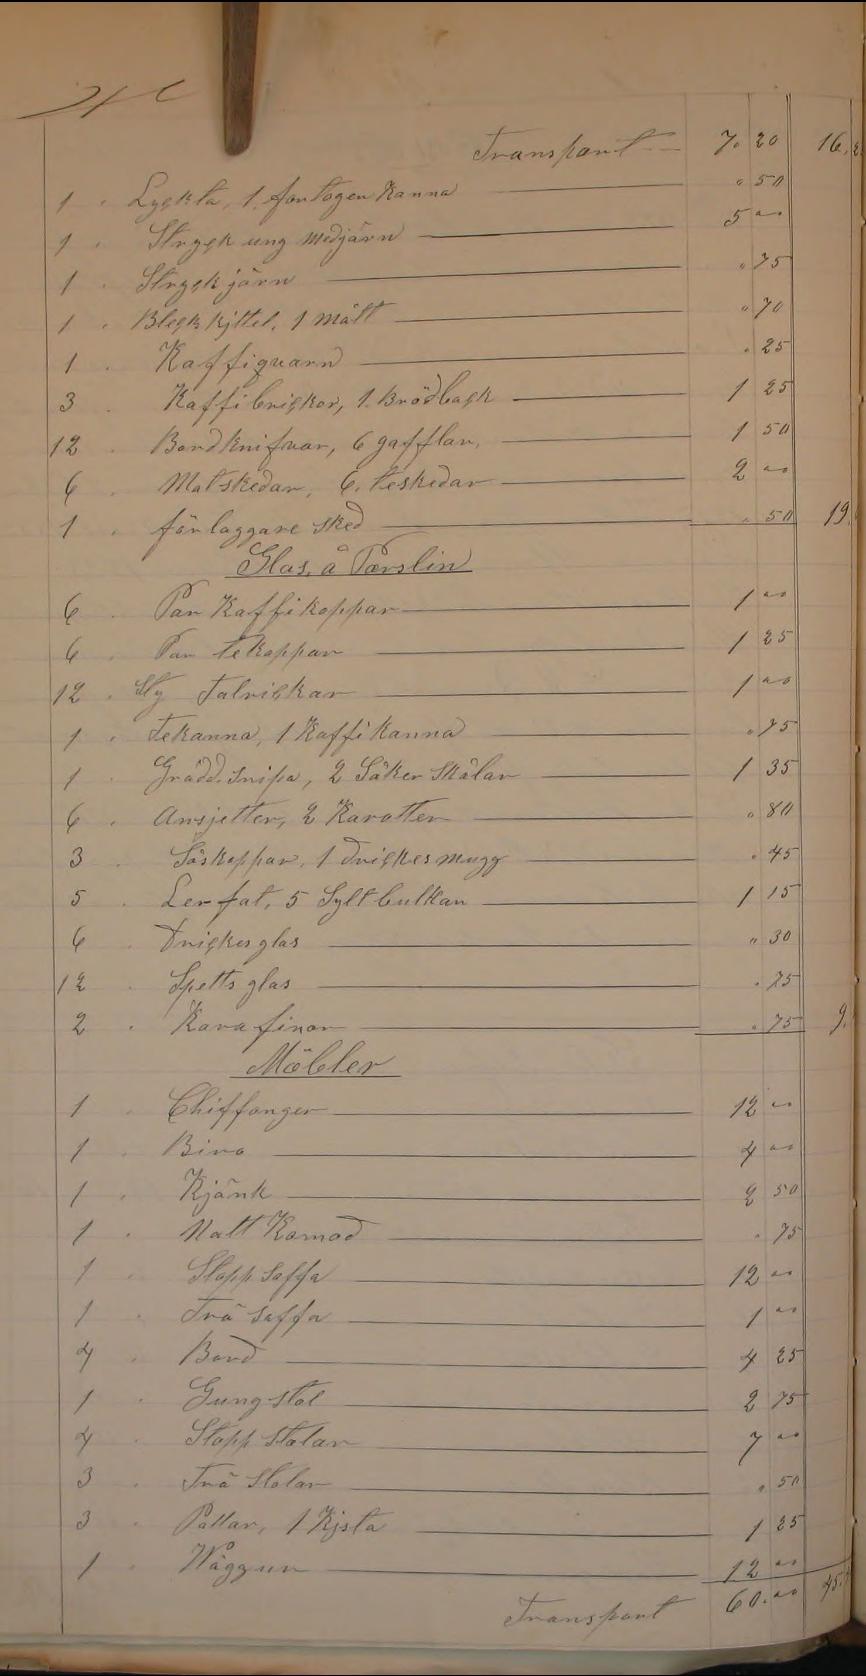 Transport 7. 20 16.
1 " Lyckta, 1 fortogen Kanna " 50
1 " Stryck ung medjärn 5 "
1 " Stryck järn " 75
1 " Bleck kjttel, 1 mått " 70
1 " Kaffiqvarn " 25
3 Kaffi brickor, 1 Brödback 1 25
12 " Bord knifvar, 6 gafflar, 1 50
6 " Matskedar, 6 teskedar 2 "
1 " förlaggare sked " 50 19
Glas å Porslin
6 " Par Kaffikoppar 1 "
6 " Par tekoppar 1 25
12 " Sty Talrickar 1 "
1 " Tekanna, 1 Kaffikanna " 75
1 " Grädd. snipa, 2 Såker Skålar 1 35
6 " Ansjetter, 2 Karotter " 80
3 " Såskoppar, 1 drickesmugg " 45
5 " Lerfat, 5 Syltbulkar 1 15
6 " Drickesglas " 30
12 " Spetts glas " 75
2 " Karafiner " 75 9.
Möbler
1 " Chiffonger 12 "
1 " Biro 4 "
1 " Kjänk 2 50
1 " Natt Komod " 75
1 " Stopp Soffa 12 "
1 " Trä soffa 1 "
4 " Bord 4 25
1 " Gungstol 2 75
4 " Stopp Stolar 7 "
3 " Trä Stolar " 50
3 " Pallar, 1 Kjsta 1 25
1 " Våggur 12 "
Transport 60. " 45.